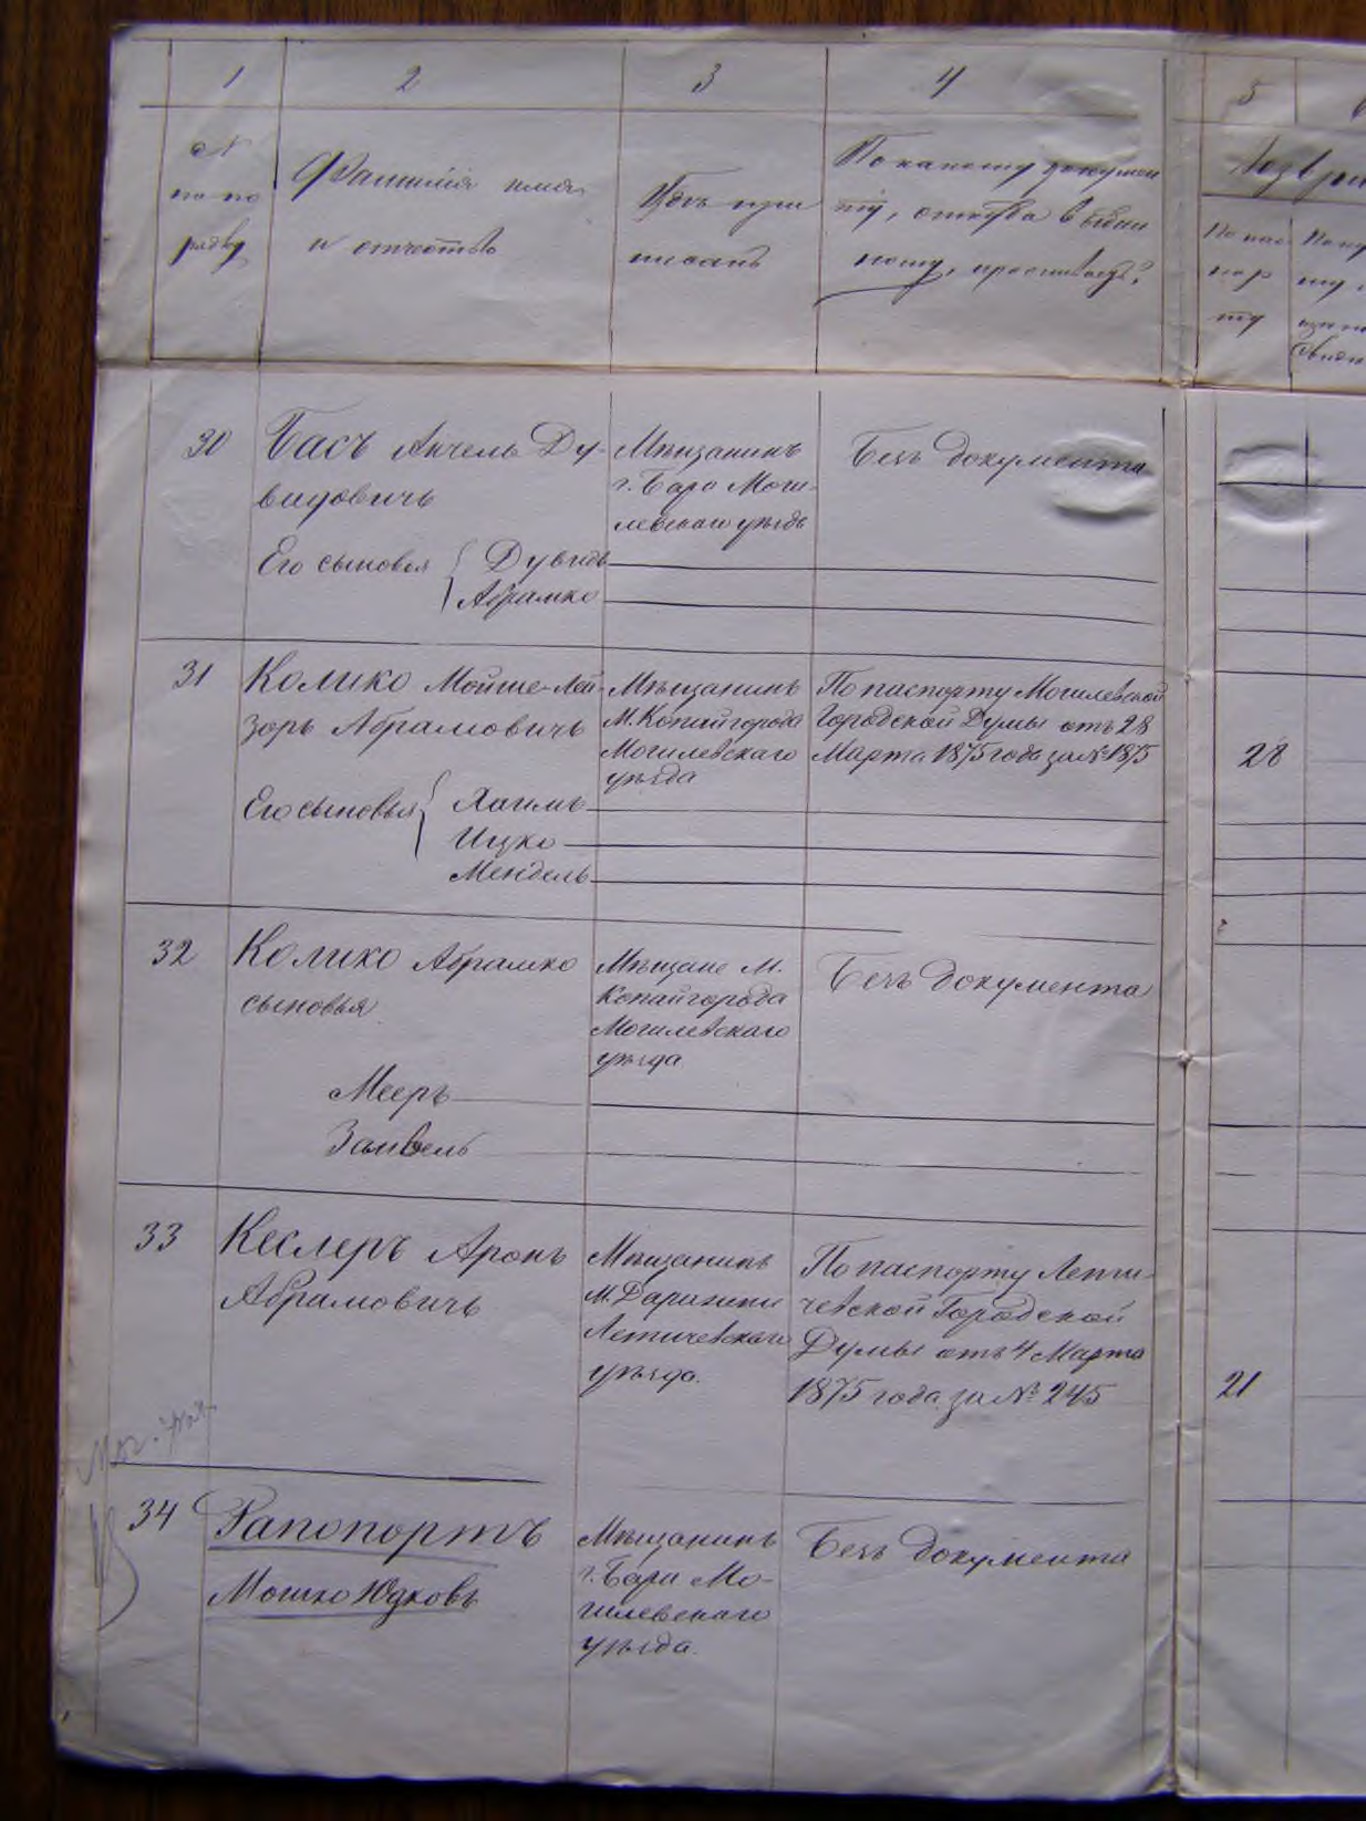 1 2 3 4 5
№ по по рядку
Фамилія имя и отчество
Гдѣ при писанъ
По какому докумен ту, откуда и выдан ному, проживаетъ?
По пас пор ту
30 Басъ Анчель Ду- Мѣщанинъ Безъ документа
видовичъ г. Бара Моги-
левскаго уѣзда
Его сыновья Дувидъ
Абрамко
31 Колико Мойше-Лей- Мѣщанинъ По паспорту Могилевской
зоръ Абрамовичъ М. Копайгорода Городской Думы отъ 28
Могилевскаго Марта 1875 года за № 1875 28
уѣзда
Его сыновья Хаимъ
Ицко
Мендель
32 Колико Абрамко Мѣщане М. Безъ документа
сыновья Копайгорода
Могилевскаго
уѣзда
Мееръ
Замвель
33 Кеслеръ Аронъ Мѣщанинъ По паспорту Лети-
Абрамовичъ М. Деражни чевской Городской
Летичевскаго Думы отъ 4 Марта
уѣзда. 1875 года за № 245 21
34 Рапопортъ Мѣщанинъ Безъ документа
Мошко Юдковъ г. Бара Мо-
гилевскаго
уѣзда.